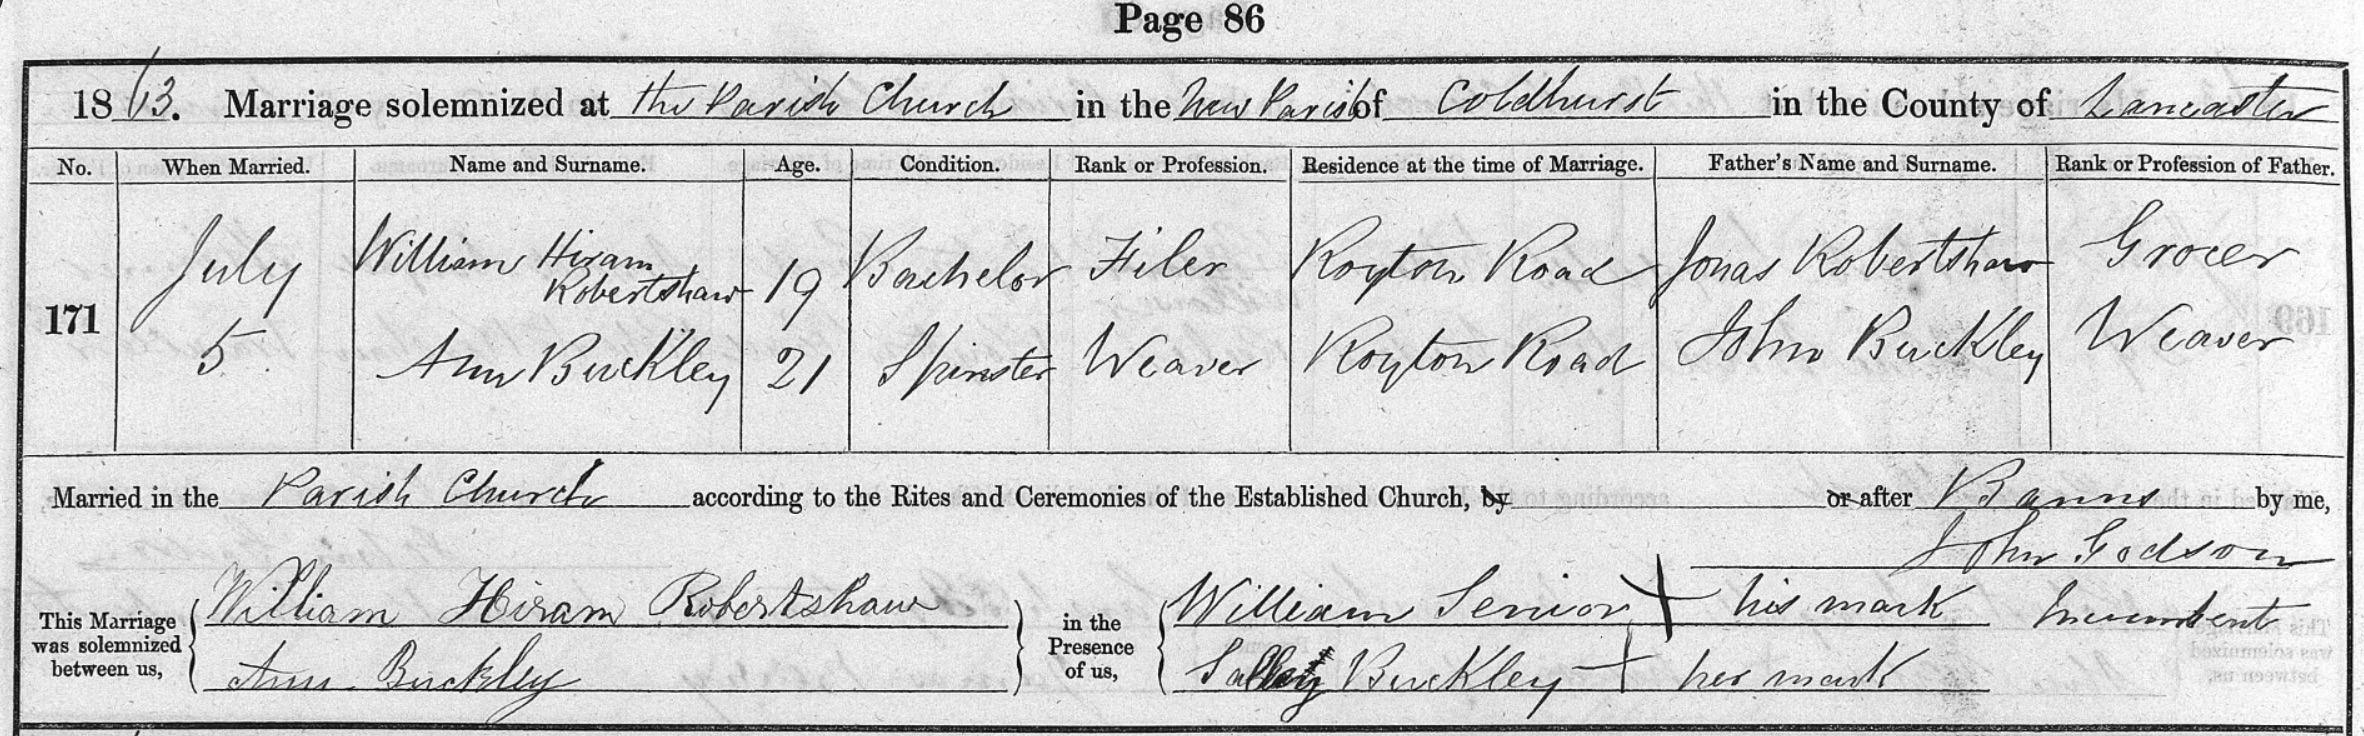 Page 86
1863. Marriage solemnized at the Parish Church in the New Parish of Coldhurst in the County of Lancaster
No. When Married. Name and Surname. Age. Condition. Rank or Profession. Residence at the time of Marriage. Father's Name and Surname. Rank or Profession of Father.
171 July 5 William Hiram Robertshaw 19 Bachelor Filer Royton Road Jonas Robertshaw Grocer
Ann Buckley 21 Spinster Weaver Royton Road John Buckley Weaver
Married in the Parish Church according to the Rites and Ceremonies of the Established Church, by or after Banns by me,
John Godson
Incumbent
This Marriage was solemnized between us, William Hiram Robertshaw in the Presence of us, William Senior + his mark
Ann Buckley Sally Buckley + her mark